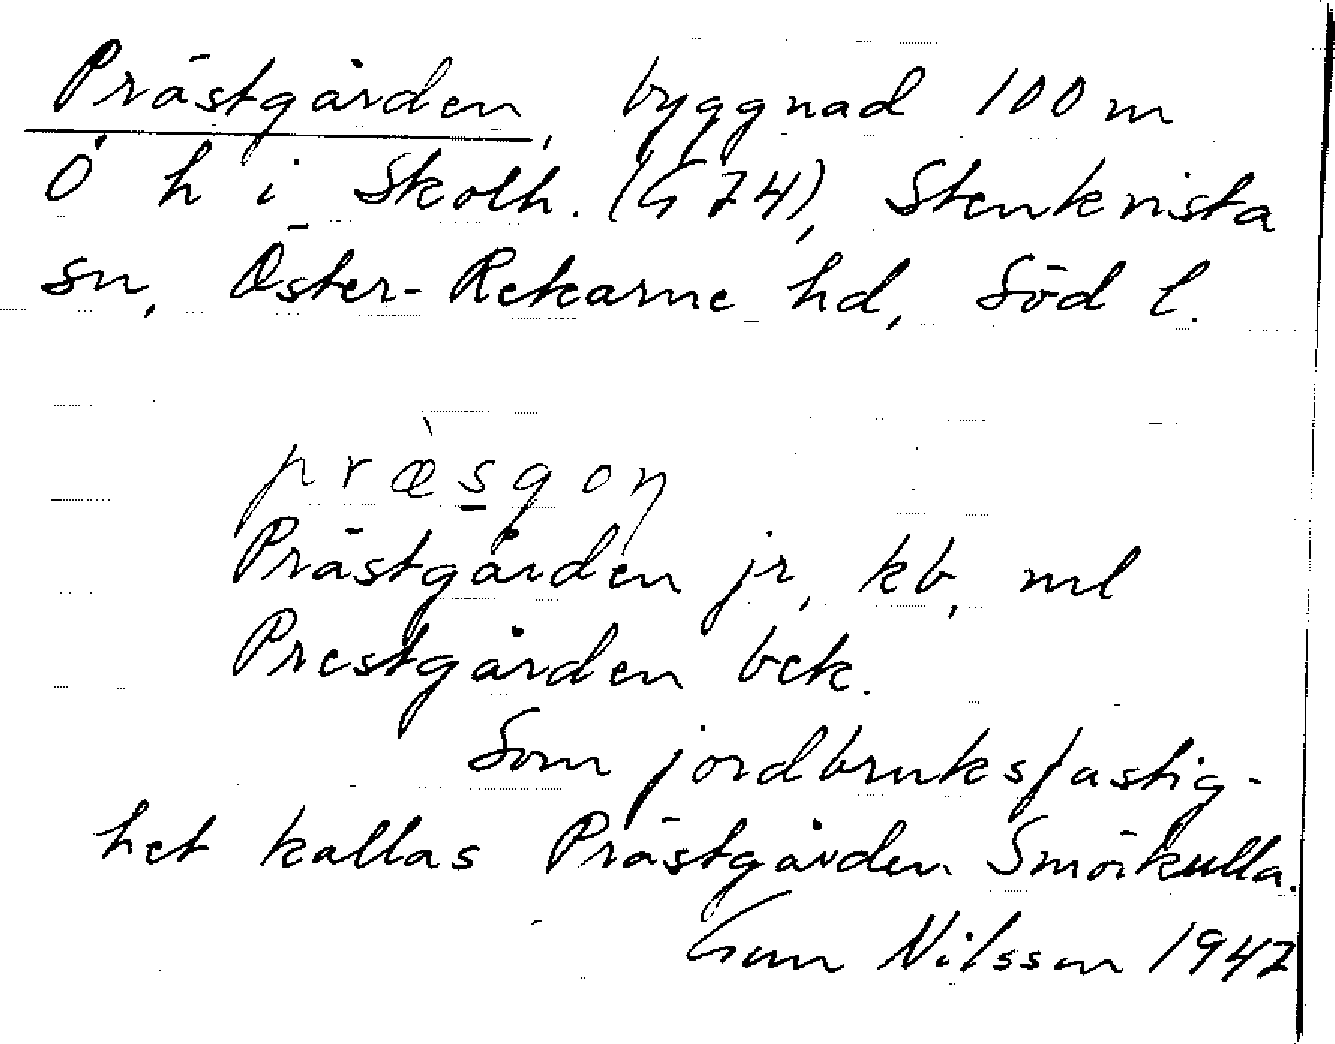 Prästgården, byggnad 100 m
Ö h i Skolh. (G 74), Stenkvista
sn, Öster-Rekarne hd, Söd l.
præ̀sgoɳ
Prästgården jr, kb, ml
Prestgården bek.
Som jordbruksfastig-
het kallas Prästgården Smörkulla.
Gun Nilsson 1947